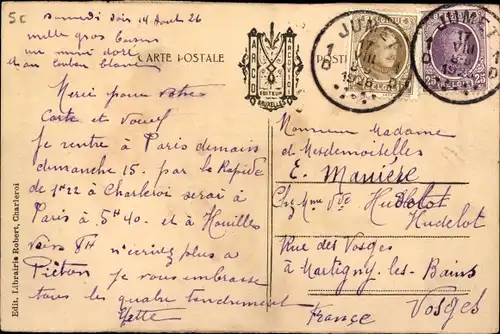 5c
Samedi soir 14 Août 26
mille gros
mimi dort
et au
CARTE POSTALE
POST
EDITEUR
BRUXELLES
JUMET
1926
BELGIQUE
JUMET
VIII
25
Merci pour votre
Carte et
je rentre à Paris demain
dimanche 15. par le Rapide
de 1H22 à Charleroi serai à
Paris à 5H40. et à Houilles
vers 7H n'écrivez plus à
Piéton je vous embrasse
tous les quatre tendrement
Yette
Edit. Librairie Robert, Charleroi
Monsieur Madame
et Mesdemoiselles
E. Manière
Chez Mme Vve Hudelot
Hudelot
Rue des Vosges
à Martigny-les-Bains
Vosges
France